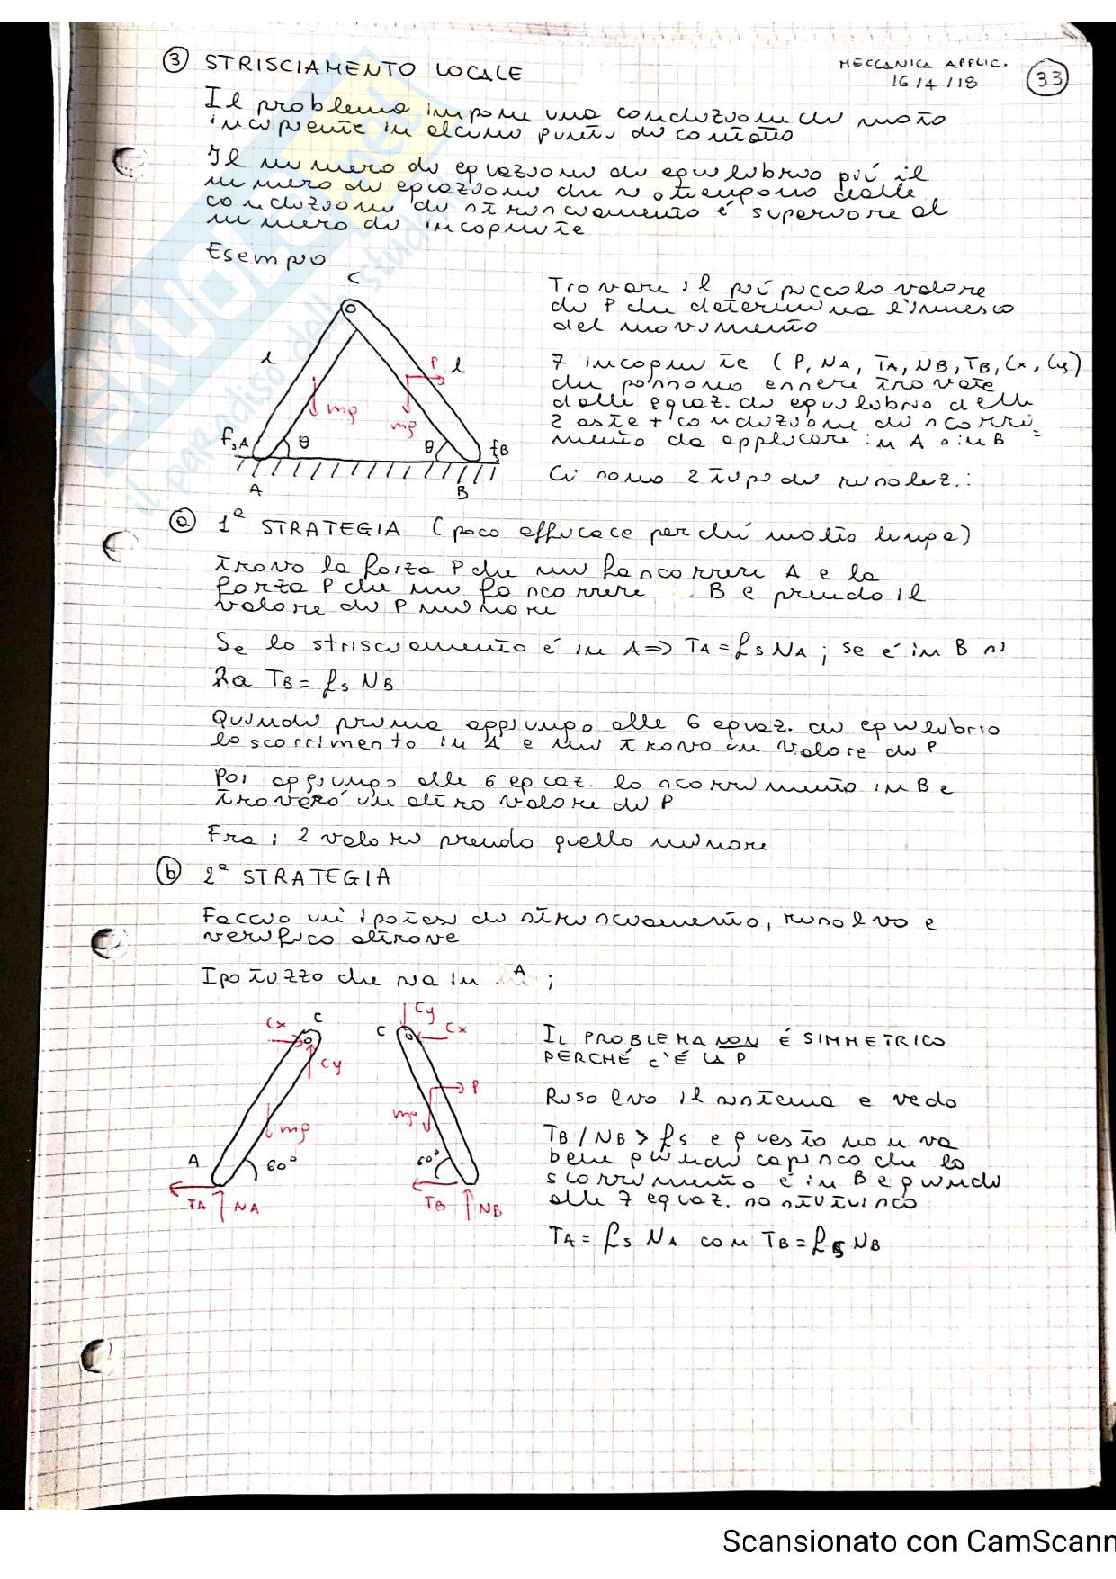 ③ STRISCIAMENTO LOCALE
MECCANICA APPLIC.
16/4/18
33
Il problema impone una condizione di moto
incipiente in alcuni punti di contatto
Il numero di equazioni di equilibrio più il
numero di equazioni che si ottengono dalle
condizioni di strisciamento é superiore al
numero di incognite
Esempio
Trovare il più piccolo valore
di P che determina l'innesco
del movimento
7 incognite (P, NA, TA, NB, TB, Cx, Cy)
che possono essere trovate
dalle equaz. di equilibrio delle
2 aste + condizione di scorri-
mento da applicare in A o in B
Ci sono 2 tipi di risoluz.:
C
l
l
P
mg
mg
fsA
θ
θ
fB
A
B
ⓐ 1ª STRATEGIA (poco efficace perché molto lunga)
Trovo la forza P che mi fa scorrere A e la
forza P che mi fa scorrere B e prendo il
valore di P minore
Se lo strisciamento é in A => TA = fs NA ; se é in B si
ha TB = fs NB
Quindi prima aggiungo alle 6 equaz. di equilibrio
lo scorrimento in A e mi trovo un valore di P
Poi aggiungo alle 6 equaz. lo scorrimento in B e
troveró un altro valore di P
Fra i 2 valori prendo quello minore
ⓑ 2ª STRATEGIA
Faccio un'ipotesi di strisciamento, risolvo e
verifico altrove
Ipotizzo che sia in A ;
Cx
C
Cy
mg
A
60°
TA
NA
Cy
C
Cx
P
mg
60°
TB
NB
IL PROBLEMA NON É SIMMETRICO
PERCHÉ C'É LA P
Risolvo il sistema e vedo
TB/NB > fs e questo non va
bene quindi capisco che lo
scorrimento é in B e quindi
alle 7 equaz. sostituisco
TA = fs NA con TB = fs NB
Scansionato con CamScann